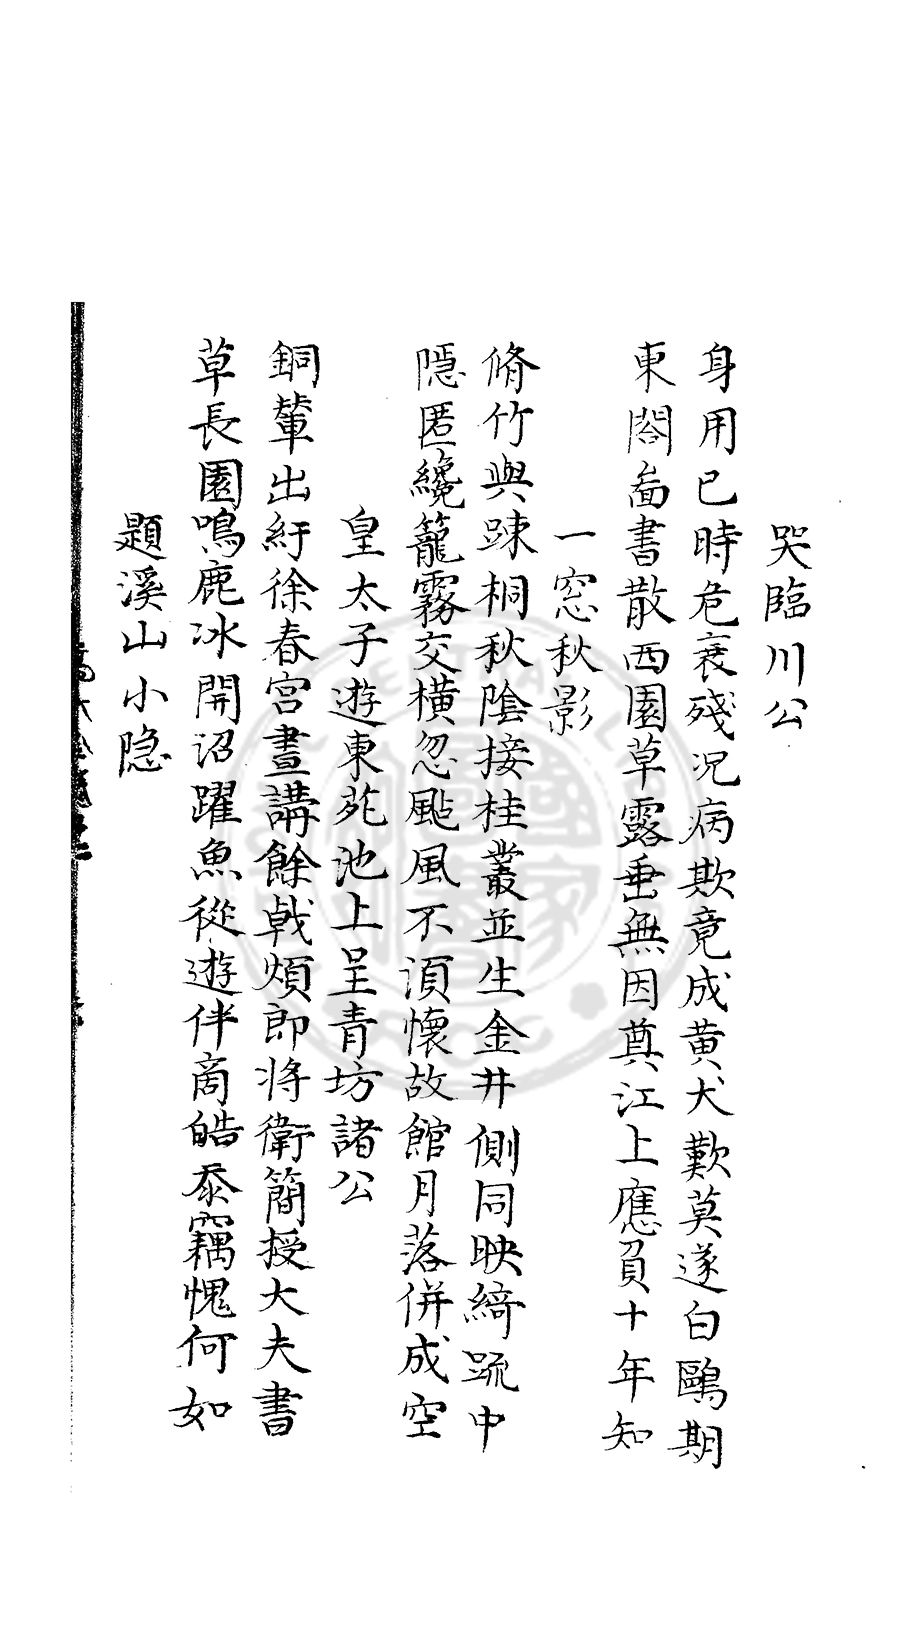 哭臨川公
身用已時危衰殘況病欺竟成黄犬歎莫遂白鷗期
東閤啚書散西園草露垂無因奠江上應負十年知
一窓秋影
脩竹與踈桐秋陰接桂叢並生金井側同映綺疏中
隱匿纔籠霧交橫忽颭風不湏懷故館月落併成空
皇太子遊東苑池上呈青坊諸公
銅輦出紆徐春宮晝講餘戟煩即將衛簡授大夫書
草長園鳴鹿冰開沼躍魚從遊伴商皓忝竊愧何如
題溪山小隐